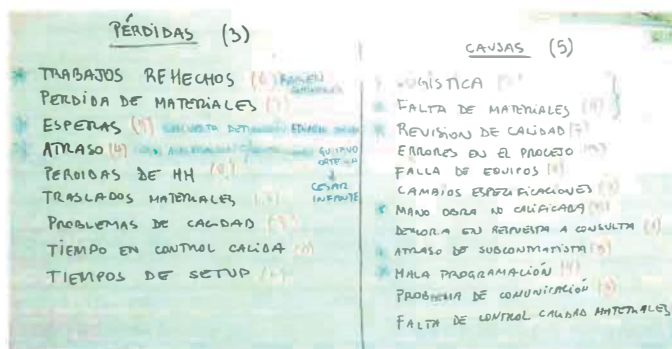 PÉRDIDAS (3)
TRABAJOS REHECHOS (6)
PERDIDA DE MATERIALES
ESPERAS
ATRASO (4)
GUSTAVO
PERDIDAS DE HH
CESAR
INFANTE
TRASLADOS MATERIALES
PROBLEMAS DE CALIDAD
TIEMPO EN CONTROL CALIDA
TIEMPOS DE SETUP
CAUSAS (5)
LOGISTICA
FALTA DE MATERIALES
REVISION DE CALIDAD
ERRORES EN EL PROCESO
FALLA DE EQUIPOS
CAMBIOS ESPECIFICACIONES
MANO OBRA NO CALIFICADA
DEMORA EN RESPUESTA A CONSULTA
ATRASO DE SUBCONTRATISTA
MALA PROGRAMACIÓN
PROBLEMA DE COMUNICACIÓN
FALTA DE CONTROL CALIDAD MATERIALES